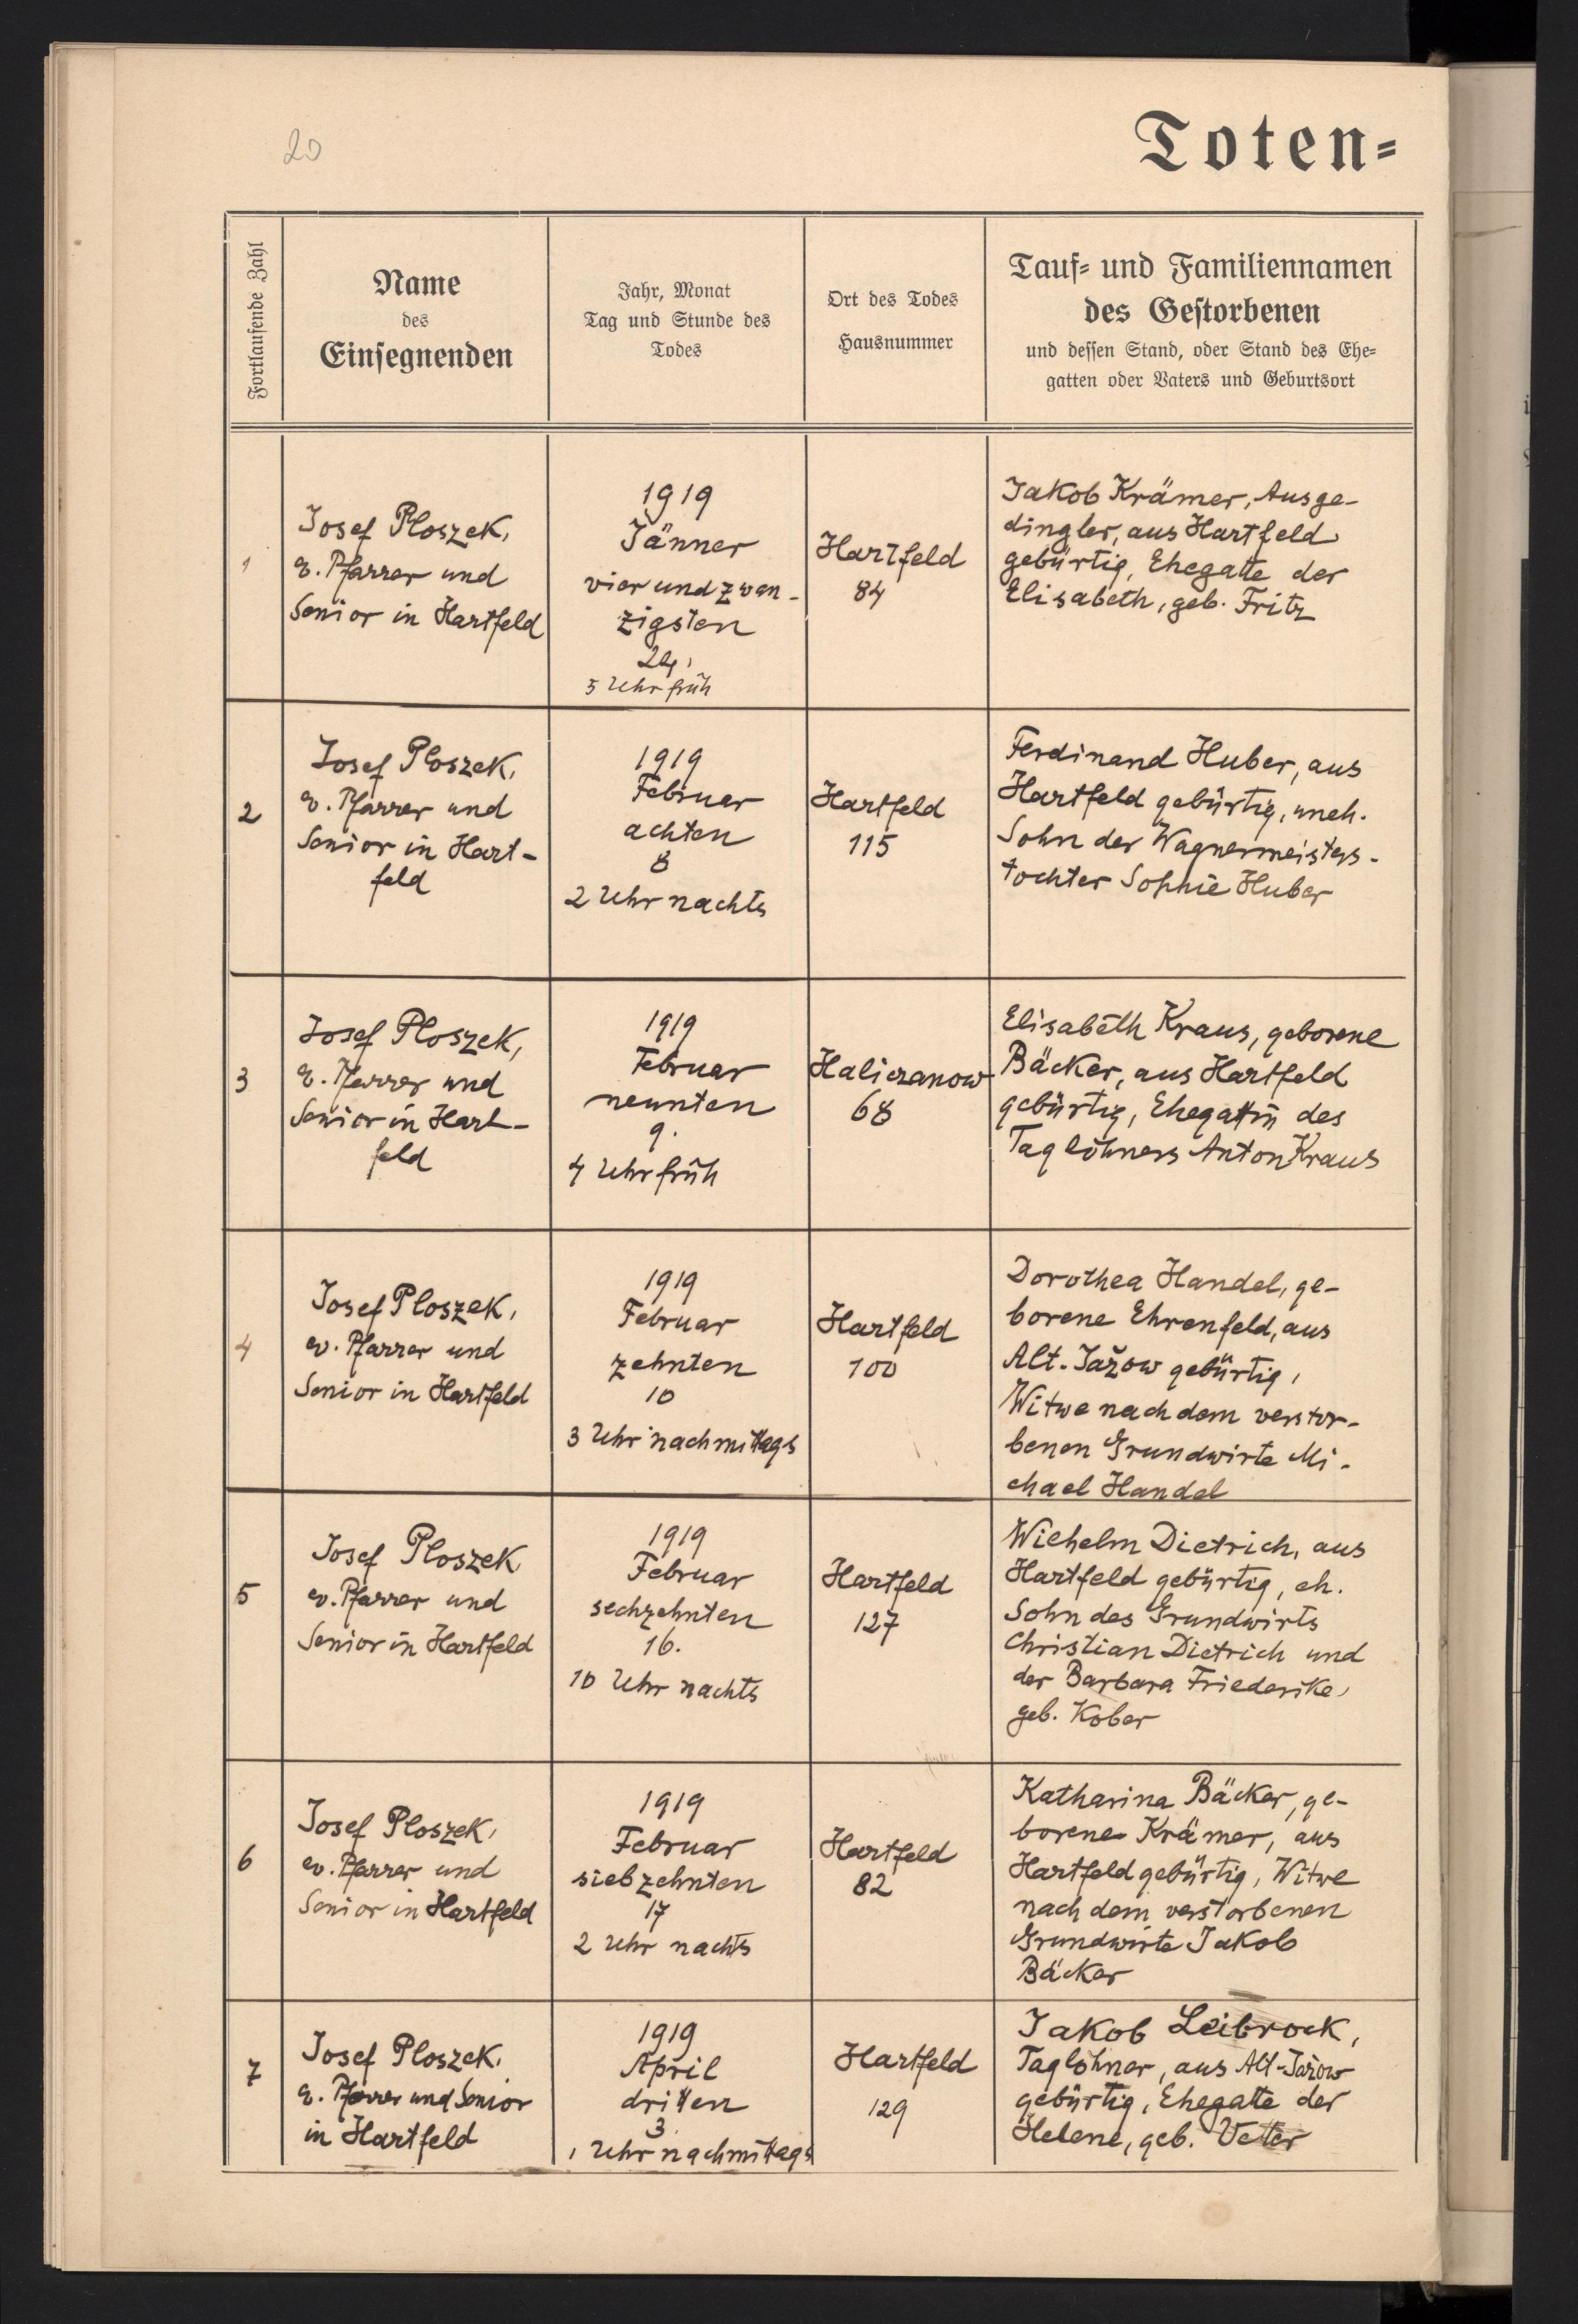 20
Toten=
Fortlaufende Zahl
Name
des
Einsegnenden
Jahr, Monat
Tag und Stunde des
Todes
Ort des Todes
Hausnummer
Tauf= und Familiennamen
des Gestorbenen
und dessen Stand, oder Stand des Ehe=
gatten oder Vaters und Geburtsort
1
Josef Ploszek,
ev. Pfarrer und
Senior in Hartfeld
1919
Jänner
vier und zwan-
zigsten
24.
5 Uhr früh
Hartfeld
84
Jakob Krämer, Ausge-
dingler, aus Hartfeld
gebürtig, Ehegatte der
Elisabeth, geb. Fritz
2
Josef Ploszek,
ev. Pfarrer und
Senior in Hart-
feld
1919
Februar
achten
8
2 Uhr nachts
Hartfeld
115
Ferdinand Huber, aus
Hartfeld gebürtig, uneh.
Sohn der Wagnermeisters-
tochter Sophie Huber
3
Josef Ploszek,
ev. Pfarrer und
Senior in Hart-
feld
1919
Februar
neunten
9.
4 Uhr früh
Haliczanow
68
Elisabeth Kraus, geborene
Bäcker, aus Hartfeld
gebürtig, Ehegattin des
Taglöhners Anton Kraus
4
Josef Ploszek,
ev. Pfarrer und
Senior in Hartfeld
1919
Februar
zehnten
10
3 Uhr nachmittags
Hartfeld
100
Dorothea Handel, ge-
borene Ehrenfeld, aus
Alt-Jažow gebürtig,
Witwe nach dem verstor-
benen Grundwirte Mi-
chael Handel
5
Josef Ploszek
ev. Pfarrer und
Senior in Hartfeld
1919
Februar
sechzehnten
16.
10 Uhr nachts
Hartfeld
127
Wilhelm Dietrich, aus
Hartfeld gebürtig, eh.
Sohn des Grundwirts
Christian Dietrich und
der Barbara Friederike,
geb. Kober
6
Josef Ploszek,
ev. Pfarrer und
Senior in Hartfeld
1919
Februar
siebzehnten
17
2 Uhr nachts
Hartfeld
82
Katharina Bäcker, ge-
borene Krämer, aus
Hartfeld gebürtig, Witwe
nach dem verstorbenen
Grundwirte Jakob
Bäcker
7
Josef Ploszek,
ev. Pfarrer und Senior
in Hartfeld
1919
April
dritten
3.
1 Uhr nachmittags
Hartfeld
129
Jakob Leibrock,
Taglöhner, aus Alt-Jažow
gebürtig, Ehegatte der
Helene, geb. Vetter